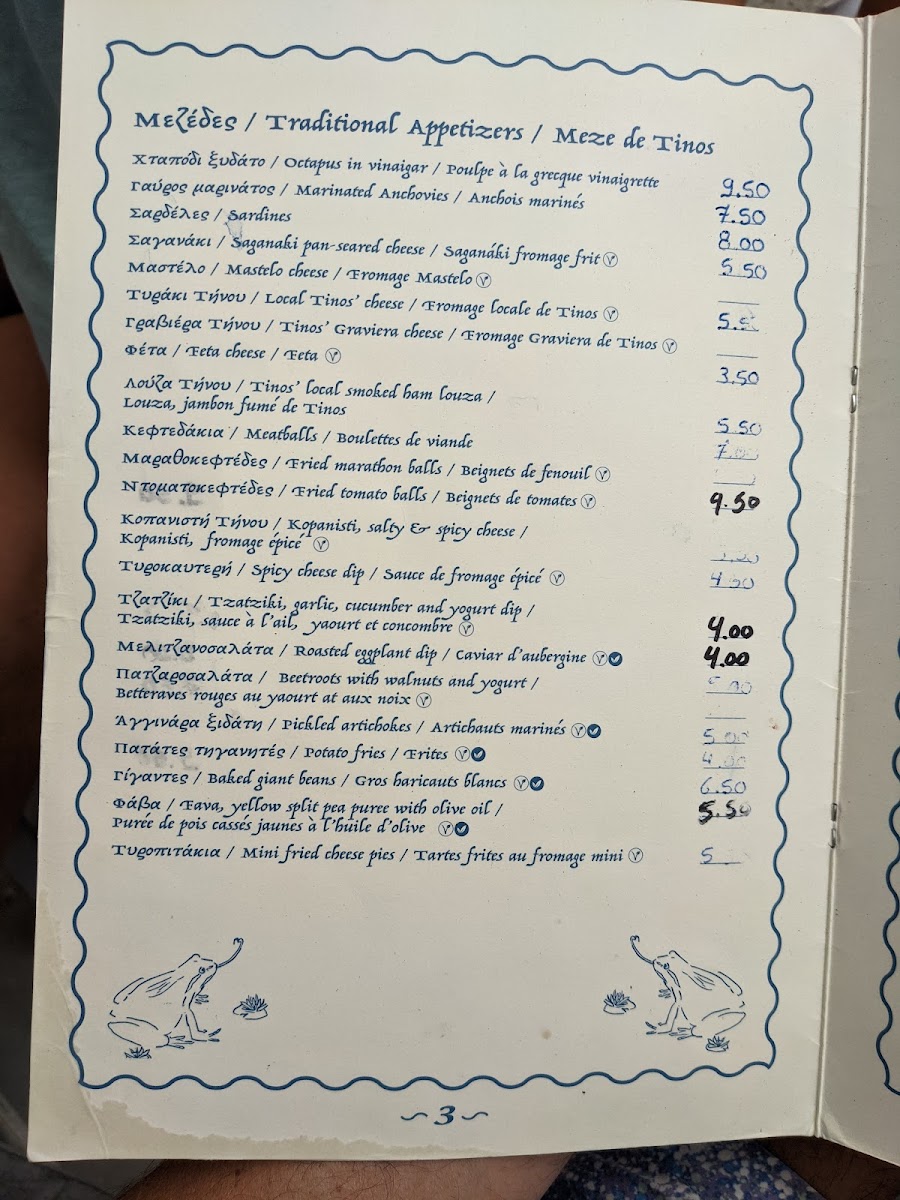 Μεζέδες / Traditional Appetizers / Meze de Tinos
Χταπόδι ξυδάτο / Octapus in vinaigar / Poulpe à la grecque vinaigrette 9.50
Γαύρος μαρινάτος / Marinated Anchovies / Anchois marinés 7.50
Σαρδέλες / Sardines 8.00
Σαγανάκι / Saganaki pan-seared cheese / Saganáki fromage frit 5.50
Μαστέλο / Mastelo cheese / Fromage Mastelo
Τυράκι Τήνου / Local Tinos' cheese / Fromage locale de Tinos
Γραβιέρα Τήνου / Tinos' Graviera cheese / Fromage Graviera de Tinos
Φέτα / Feta cheese / Feta 3.50
Λούζα Τήνου / Tinos' local smoked ham louza /
Louza, jambon fumé de Tinos 5.50
Κεφτεδάκια / Meatballs / Boulettes de viande 7.00
Μαραθοκεφτέδες / Fried marathon balls / Beignets de fenouil
Ντοματοκεφτέδες / Fried tomato balls / Beignets de tomates 9.50
Κοπανιστή Τήνου / Kopanisti, salty & spicy cheese /
Kopanisti, fromage épicé
Τυροκαυτερή / Spicy cheese dip / Sauce de fromage épicé 4.50
Τζατζίκι / Tzatziki, garlic, cucumber and yogurt dip /
Tzatziki, sauce à l'ail, yaourt et concombre 4.00
Μελιτζανοσαλάτα / Roasted eggplant dip / Caviar d'aubergine 4.00
Πατζαροσαλάτα / Beetroots with walnuts and yogurt / 5.00
Betteraves rouges au yaourt at aux noix
Άγγινάρα ξιδάτη / Pickled artichokes / Artichauts marinés 5.00
Πατάτες τηγανητές / Potato fries / Frites 4.00
Γίγαντες / Baked giant beans / Gros haricauts blancs 6.50
Φάβα / Fava, yellow split pea puree with olive oil / 5.50
Purée de pois cassés jaunes à l'huile d'olive
Τυροπιτάκια / Mini fried cheese pies / Tartes frites au fromage mini
3